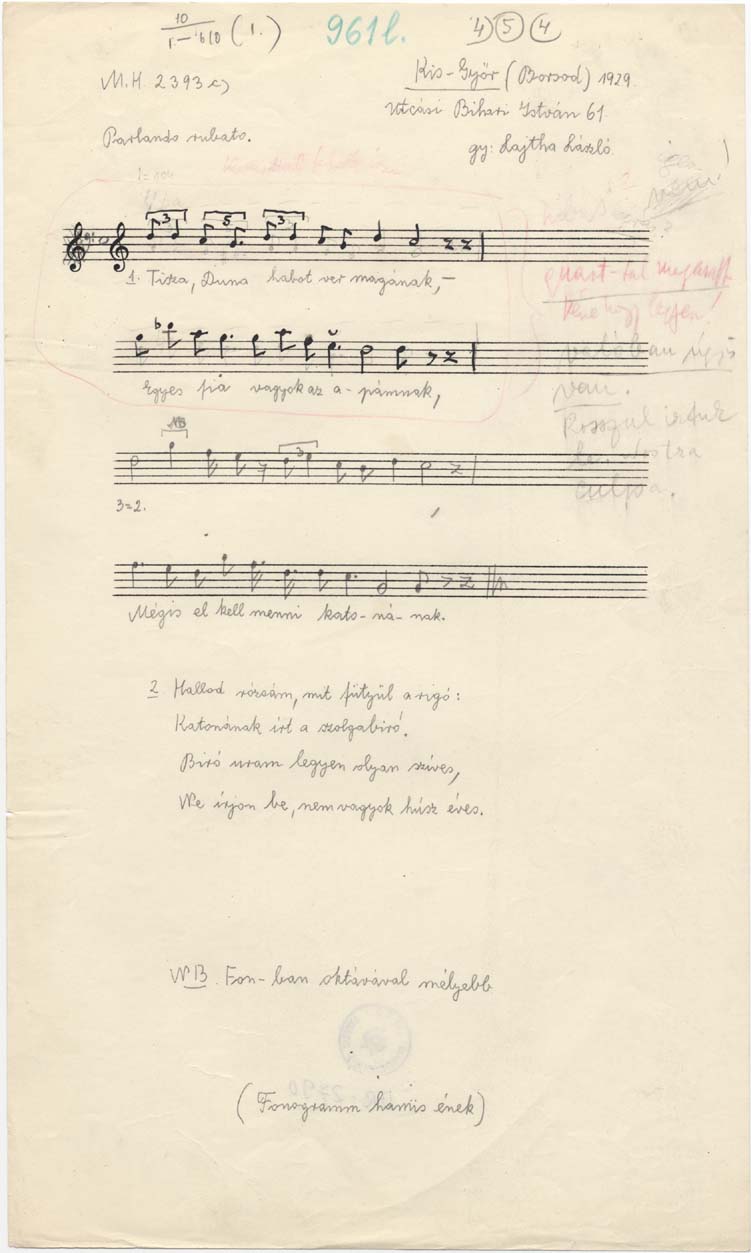 10
I.–610 (1.)
961l.
4) 5 4
M.H. 2393 c)
Kis-Győr (Borsod) 1929.
Utcási Bihari István 61
Parlando rubato.
gy: Lajtha László.
nem!
3 5 3
1. Tisza, Duna habot ver magának, –
quart-tal
hogy legyen!
Egyes fia vagyok az a-pámnak,
valóban úgy is
van.
NB
Rosszul írtuk
le. Nostra
culpa.
3
3=2.
Mégis el kell menni kato-ná-nak.
2. Hallod rózsám, mit fütyül a rigó:
Katonának írt a szolgabíró.
Biró uram legyen olyan szíves,
Ne írjon be, nem vagyok húsz éves.
NB. Fon-ban oktávával mélyebb
(Fonogramm hamis ének)